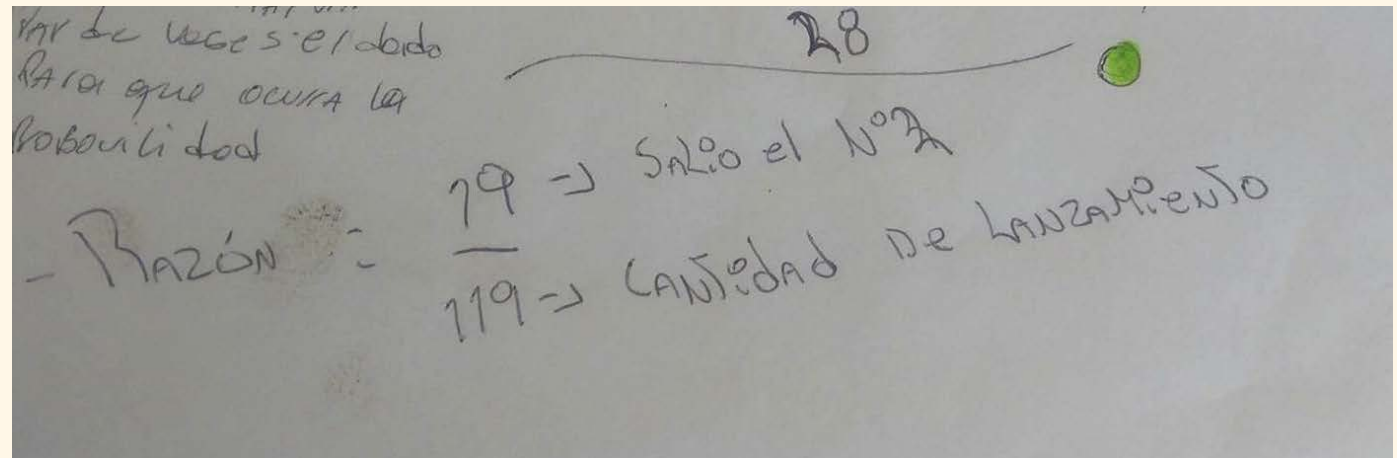 28
Par de veces el dado
Para que ocurra la
Probavilidad
- Razón = 19 => Salio el N°2
119 => Cantidad de lanzamiento